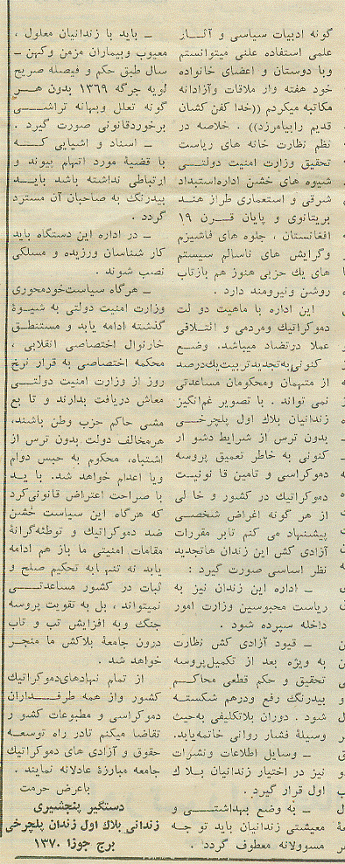 گونه ادبیات سیاسی و آثار
علمی استفاده علنی میتوانستم
وبا دوستان و اعضای خانواده
خود هفته وار ملاقات وآزادانه
مکاتبه میکردم ((خدا کفن کشان
قدیم رابیامرزد)) . خلاصه در
نظم نظارت خانه های ریاست
تحقیق وزارت امنیت دولتی
شیوه های خشن اداره‌استبداد
شرقی و استعماری طراز هند
بریتانوی و پایان قرن ۱۹
افغانستان ، جلوه های فاشیزم
وگرایش های ناسالم سیستم
های یك حزبی هنوز هم بازتاب
روشن ونیرومند دارد .
این اداره با ماهیت دو لت
دموکراتیك ومردمی و ائتلافی
عملا درتضاد میباشد. وضع
کنونی به‌تجدید تربیت یك‌درصد
از متهمان ومحکومان مساعدتی
نمی تواند . با تصویر غم‌انگیز
زندانیان بلاك اول پلچرخی
بدون ترس از شرایط دشو ار
کنونی به خاطر تعمیق پروسه
دموکراسی و تامین قا نونیت
دموکراتیك در کشور و خا لی
از هر گونه اغراض شخصی
پیشنهاد می کنم تابر مقررات
آزادی کش این زندان هاتجدید
نظر اساسی صورت گیرد :
ــ اداره این زندان نیز به
ریاست محبوسین وزارت امور
داخله سپرده شود .
ــ قیود آزادی کش نظارت
به ویژه بعد از تکمیل‌پروسه
تحقیق و حکم قطعی محاکم
بیدرنگ رفع ودرهم شکسته
شود . دوران بلاتکلیفی به‌حیث
وسیلهٔ فشار روانی خاتمه‌یابد.
ــ وسایل اطلاعات ونشرات
نیز در اختیار زندانیان بلا ك
اول قرار گیرد .
ــ به وضع بهداشتی و
معیشتی زندانیان باید تو جه
مسوولانه معطوف گردد .
ــ باید با زندانیان معلول ،
معیوب وبیماران مزمن وکهن ـ
سال طبق حکم و فیصله صریح
لویه جرگه ۱۳۶۹ بدون هر
گونه تعلل وبهانه تراشی
برخوردقانونی صورت گیرد .
ــ اسناد و اشیایی که
با قضیهٔ مورد اتهام پیوند و
ارتباطی نداشته باشد باید
بیدرنگ به صاحبان آن مسترد
گردد .
ــ در اداره این دستگاه باید
کار شناسان ورزیده و مسلکی
نصب شوند .
ــ هرگاه سیاست‌خودمحوری
وزارت امنیت دولتی به شیوهٔ
گذشته ادامه یابد و مستنطق
خارنوال اختصاصی انقلابی ،
محکمه اختصاصی به قرار نرخ
روز از وزارت امنیت دولتی
معاش دریافت بدارند و تا بع
مشی حاکم حزب وطن باشند،
هرمخالف دولت بدون ترس از
اشتباه، محکوم به حبس دوام
ویا اعدام خواهد شد. با ید
با صراحت اعتراض قانونی‌کرد
که هرگاه این سیاست خشن
ضد دموکراتیك و توطئه‌گرانهٔ
مقامات امنیتی ما باز هم ادامه
یابد نه تنها به تحکیم صلح و
ثبات در کشور مساعدتی
نمیتواند ، بل به تقویت پروسه
جنگ وبه افزایش تب و تاب
درون جامعهٔ بلاکش ما منجر
خواهد شد .
از تمام نهادهای‌دموکراتیك
کشور واز همه طرفداران
دموکراسی و مطبوعات کشو ر
تقاضا میکنم تادر راه توسعهٔ
حقوق و آزادی های دموکراتیك
جامعه مبارزهٔ عادلانه نمایند .
باعرض حرمت
دستگیر پنجشیری
زندانی بلاك اول زندان پلچرخی
برج جوزا ۱۳۷۰